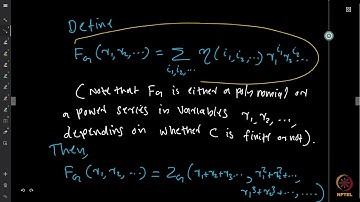 Define
F_G (r_1, r_2, ...) = Σ_{i_1, i_2, ...} η(i_1, i_2, ...) r_1^{i_1} r_2^{i_2} ...
(Note that F_G is either a polynomial or
a power series in variables r_1, r_2, ...,
depending on whether C is finite or not).
Then,
F_G (r_1, r_2, ...) = Z_G (r_1+r_2+r_3..., r_1^2+r_2^2+...,
r_1^3+r_2^3+..., ....)
NPTEL